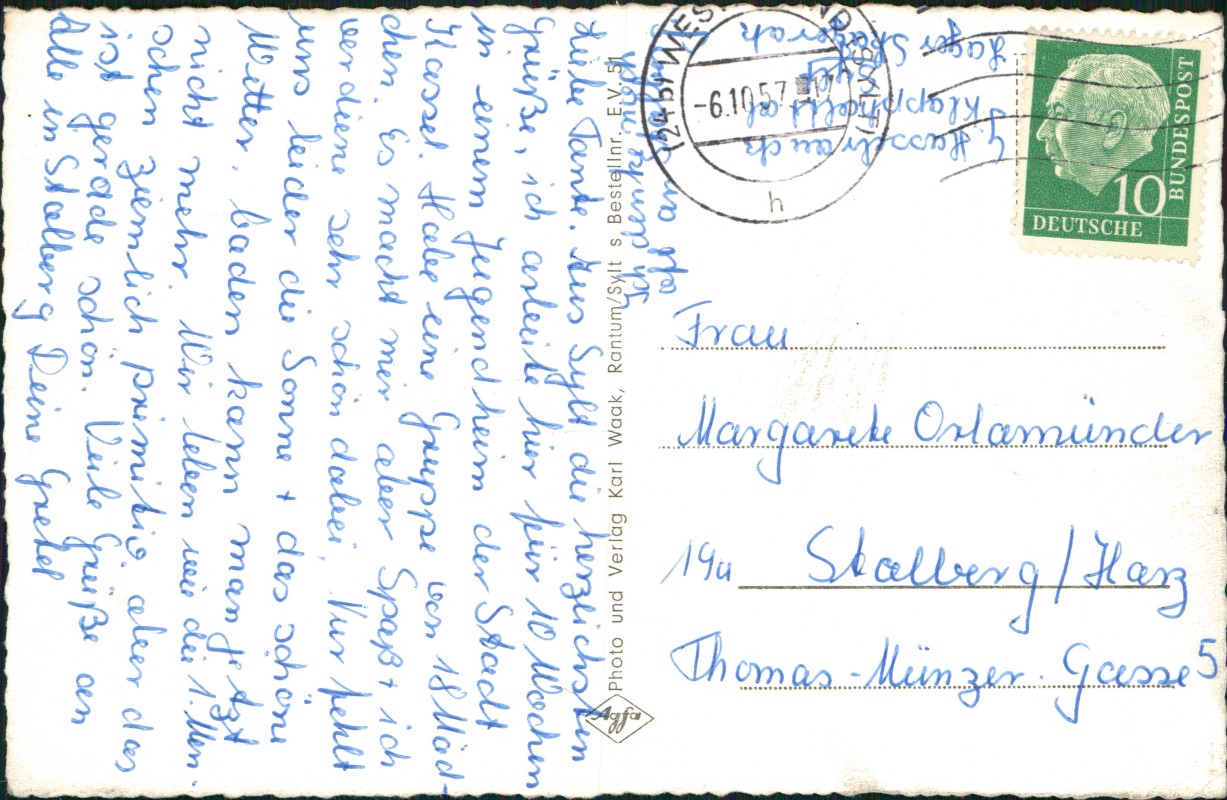 Liebe Tante. Aus Sylt die herzlichsten
Grüße, ich arbeite hier für 10 Wochen
in einem Jugendheim der Stadt
Kassel. Habe eine Gruppe von 18 Mäd-
chen. Es macht mir aber Spaß + ich
verdiene sehr schön dabei. Nur fehlt
uns leider die Sonne + das schöne
Wetter, baden kann man jetzt
nicht mehr. Wir leben wie die 1. Men-
schen ziemlich primitiv aber das
ist gerade schön. Viele Grüße an
Alle in Stolberg Deine Gretel
Photo und Verlag Karl Waak, Rantum/Sylt s Bestellnr. E.V. 51
Agfa
(24b) WES
-6.10.57
(SYLT)
h
Klappholttal
Lager Skagerak
DEUTSCHE
BUNDESPOST
10
Frau
Margarete Orlamünder
19a Stolberg/Harz
Thomas-Münzer. Gasse 5